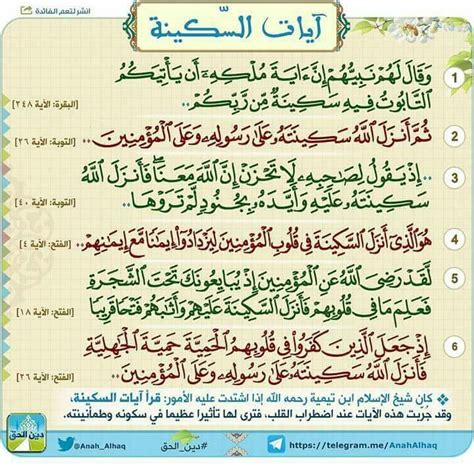 انشر لتعم الفائدة
آيات السكينة
1 وَقَالَ لَهُمْ نَبِيُّهُمْ إِنَّ ءَايَةَ مُلْكِهِۦٓ أَن يَأْتِيَكُمُ
التَّابُوتُ فِيهِ سَكِينَةٌ مِّن رَّبِّكُمْ.. [البقرة: الآية ٢٤٨]
2 ثُمَّ أَنزَلَ اللَّهُ سَكِينَتَهُۥ عَلَىٰ رَسُولِهِۦ وَعَلَى الْمُؤْمِنِينَ.. [التوبة: الآية ٢٦]
3 ..إِذْ يَقُولُ لِصَاحِبِهِۦ لَا تَحْزَنْ إِنَّ اللَّهَ مَعَنَا فَأَنزَلَ اللَّهُ
سَكِينَتَهُۥ عَلَيْهِ وَأَيَّدَهُۥ بِجُنُودٍ لَّمْ تَرَوْهَا.. [التوبة: الآية ٤٠]
4 هُوَ الَّذِىٓ أَنزَلَ السَّكِينَةَ فِى قُلُوبِ الْمُؤْمِنِينَ لِيَزْدَادُوٓا۟ إِيمَٰنًا مَّعَ إِيمَٰنِهِمْ.. [الفتح: الآية ٤]
5 لَّقَدْ رَضِىَ اللَّهُ عَنِ الْمُؤْمِنِينَ إِذْ يُبَايِعُونَكَ تَحْتَ الشَّجَرَةِ
فَعَلِمَ مَا فِى قُلُوبِهِمْ فَأَنزَلَ السَّكِينَةَ عَلَيْهِمْ وَأَثَٰبَهُمْ فَتْحًا قَرِيبًا [الفتح: الآية ١٨]
6 إِذْ جَعَلَ الَّذِينَ كَفَرُوا۟ فِى قُلُوبِهِمُ الْحَمِيَّةَ حَمِيَّةَ الْجَٰهِلِيَّةِ
فَأَنزَلَ اللَّهُ سَكِينَتَهُۥ عَلَىٰ رَسُولِهِۦ وَعَلَى الْمُؤْمِنِينَ.. [الفتح: الآية ٢٦]
كان شيخ الإسلام ابن تيمية رحمه الله إذا اشتدت عليه الأمور: قرأ آيات السكينة،
وقد جُربت هذه الآيات عند اضطراب القلب، فترى لها تأثيرا عظيما في سكونه وطمأنينته.
دين الحق
@Anah_Alhaq #دين_الحق https://telegram.me/AnahAlhaq